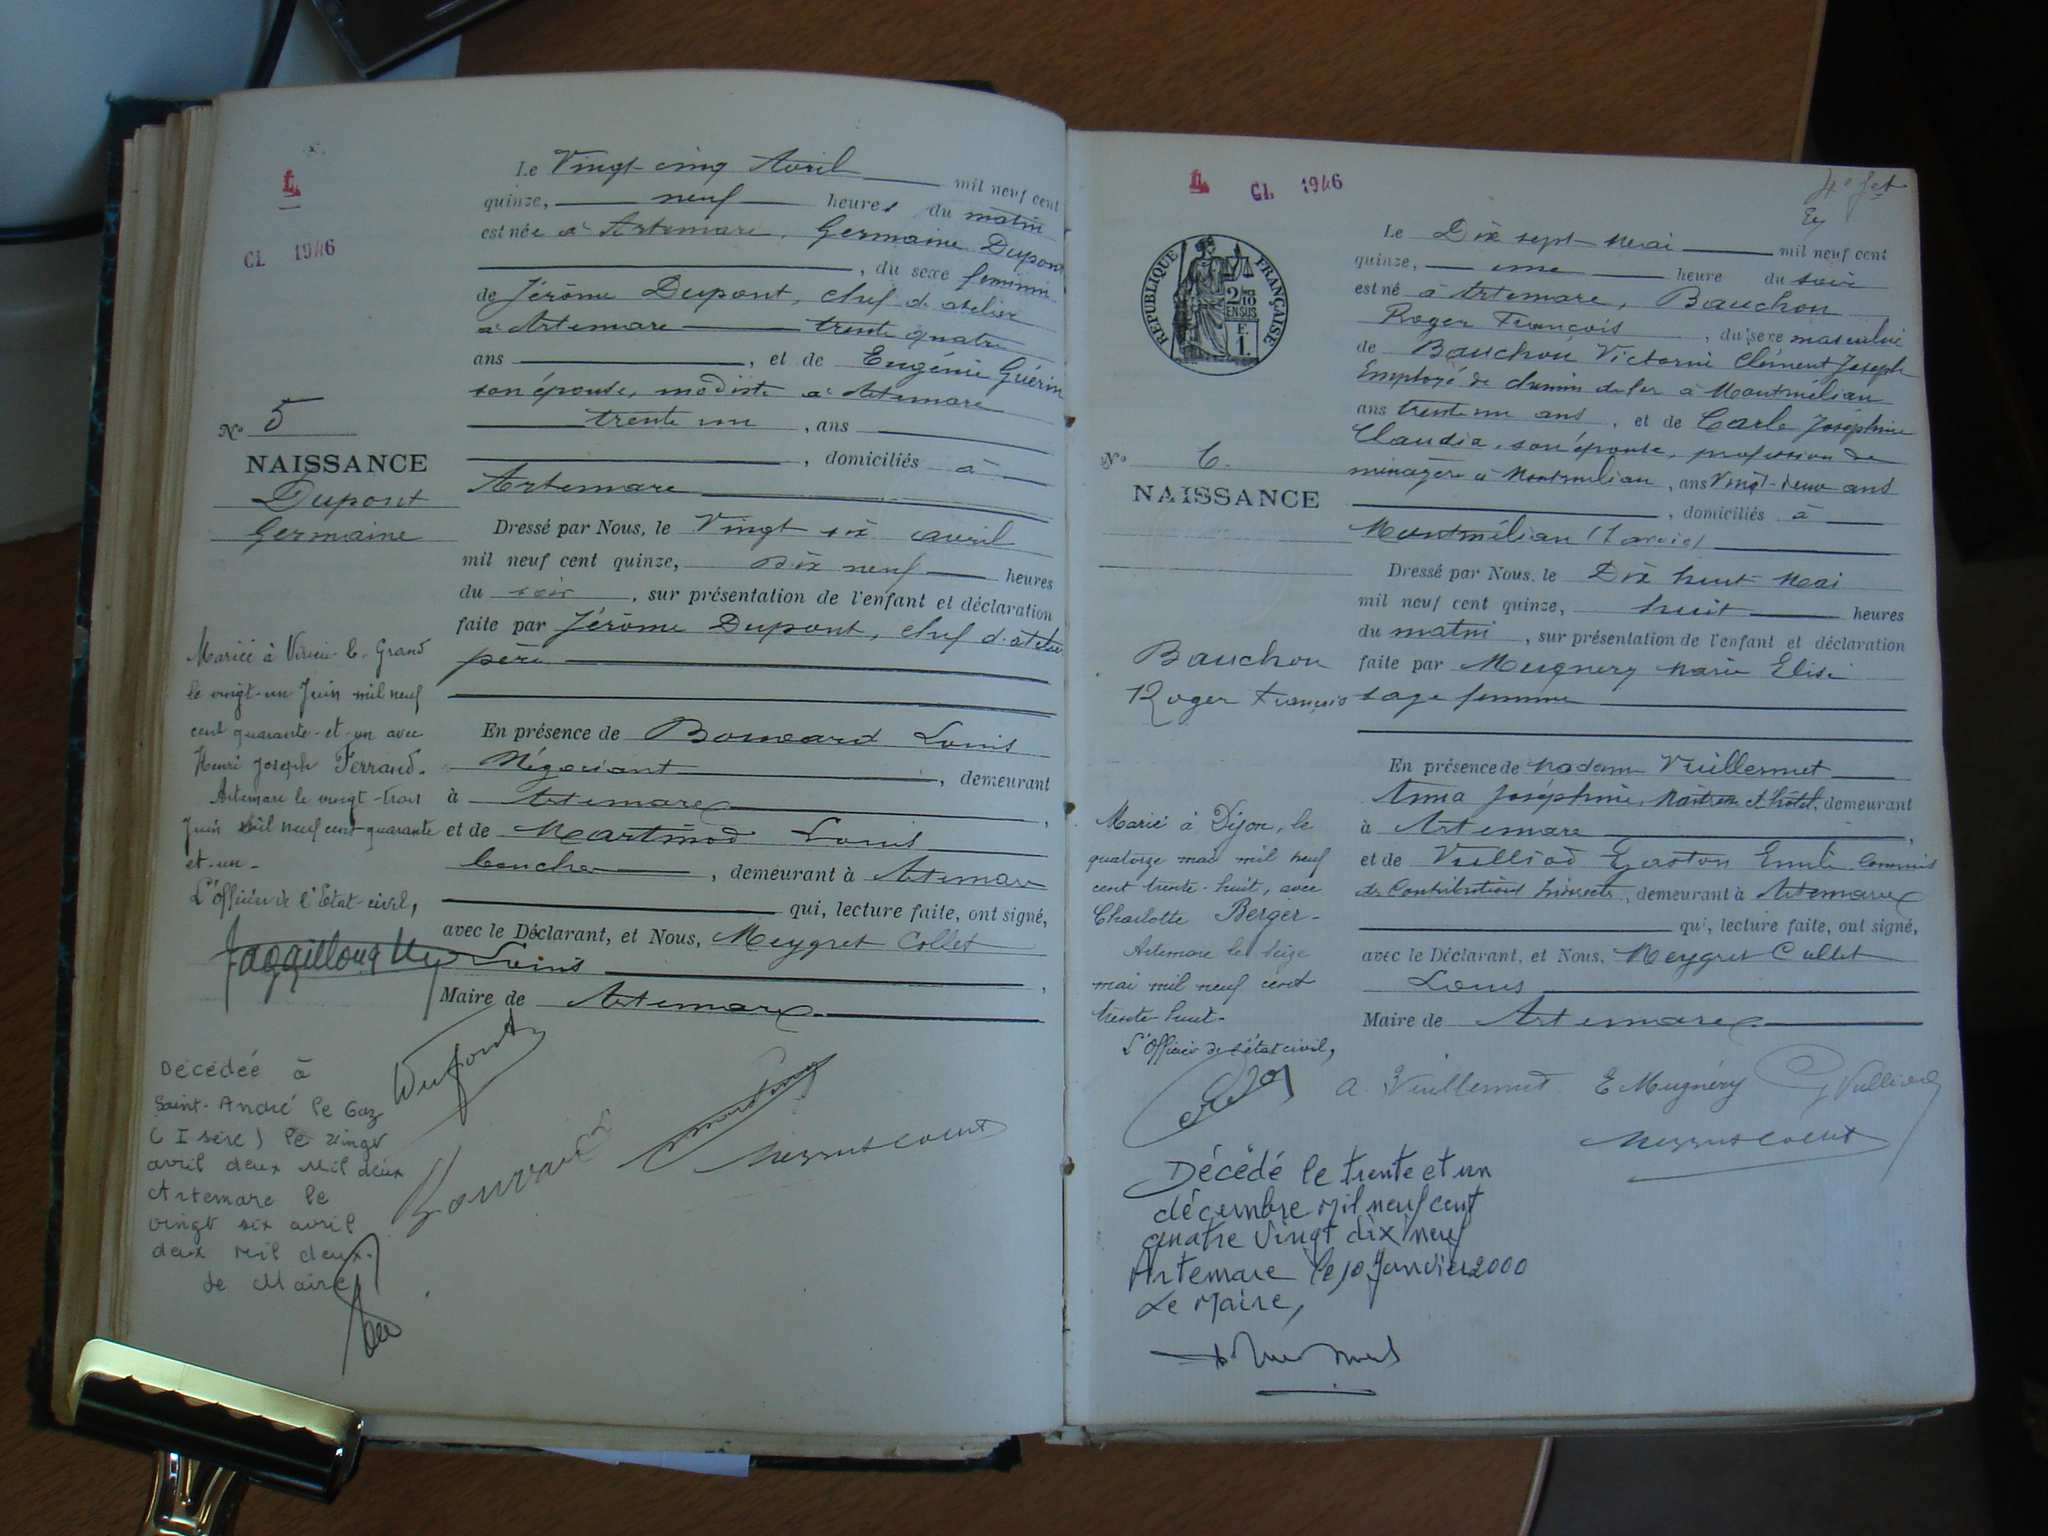 L.
CL 1946
Le Vingt cinq Avril mil neuf cent
quinze, neuf heures du matin
est née à Artemare, Germaine Dupont
, du sexe féminin
de Jérôme Dupont, chef d'atelier
à Artemare trente quatre
ans , et de Eugénie Guérin
son épouse, modiste à Artemare
trente un , ans
, domiciliés à
Artemare
Nº 5
NAISSANCE
Dupont
Germaine
Dressé par Nous, le Vingt six avril
mil neuf cent quinze, Dix neuf heures
du soir , sur présentation de l'enfant et déclaration
faite par Jérôme Dupont, chef d'atelier
père
En présence de Bonnard Louis
Négociant , demeurant
à Artemare ,
et de Martinod Louis
boucher , demeurant à Artemare
qui, lecture faite, ont signé,
avec le Déclarant, et Nous, Meygret Collet
Louis ,
Maire de Artemare
Mariée à Virieu-le-Grand
le vingt-un Juin mil neuf
cent quarante-et-un avec
Henri Joseph Ferrand.
Artemare le vingt-trois
Juin mil neuf cent quarante
et-un-
L'Officier de l'Etat-civil,
Dupont
Décédée à
Saint-André le Gaz
(Isère) le vingt
avril deux mil deux
Artemare le
vingt six avril
deux mil deux.
Le Maire
L.
CL 1946
RÉPUBLIQUE FRANÇAISE
2/10 EN SUS
F.
1.
Le Dix sept Mai mil neuf cent
quinze, une heure du soir
est né à Artemare, Bauchon
Roger François , du sexe masculin
de Bauchon Victorin Clément Joseph
Employé de chemin de fer à Montmélian
ans trente un ans , et de Carle Joséphine
Claudia, son épouse, profession de
ménagère à Montmélian , ans Vingt-deux ans
, domiciliés à
Montmélian (Savoie)
Nº 6.
NAISSANCE
Bauchon
Roger François
Dressé par Nous, le Dix huit Mai
mil neuf cent quinze, huit heures
du matin , sur présentation de l'enfant et déclaration
faite par Mugnery Marie Elise
sage femme
En présence de Madame Vuillermet
Anna Joséphine, Maîtresse d'hôtel, demeurant
à Artemare ,
et de Vulliod Gaston Emile Commis
des Contributions Indirectes, demeurant à Artemare
qui, lecture faite, ont signé,
avec le Déclarant, et Nous, Meygret Collet
Louis
Maire de Artemare
Marié à Dijon, le
quatorze mai mil neuf
cent trente-huit, avec
Charlotte Berger-
Artemare le seize
mai mil neuf cent
trente-huit-
L'Officier de l'état civil,
A. Vuillermet E Mugnéry G Vulliod
Meygret Collet
Décédé le trente et un
décembre mil neuf cent
quatre vingt dix neuf
Artemare le 10 Janvier 2000
Le Maire,